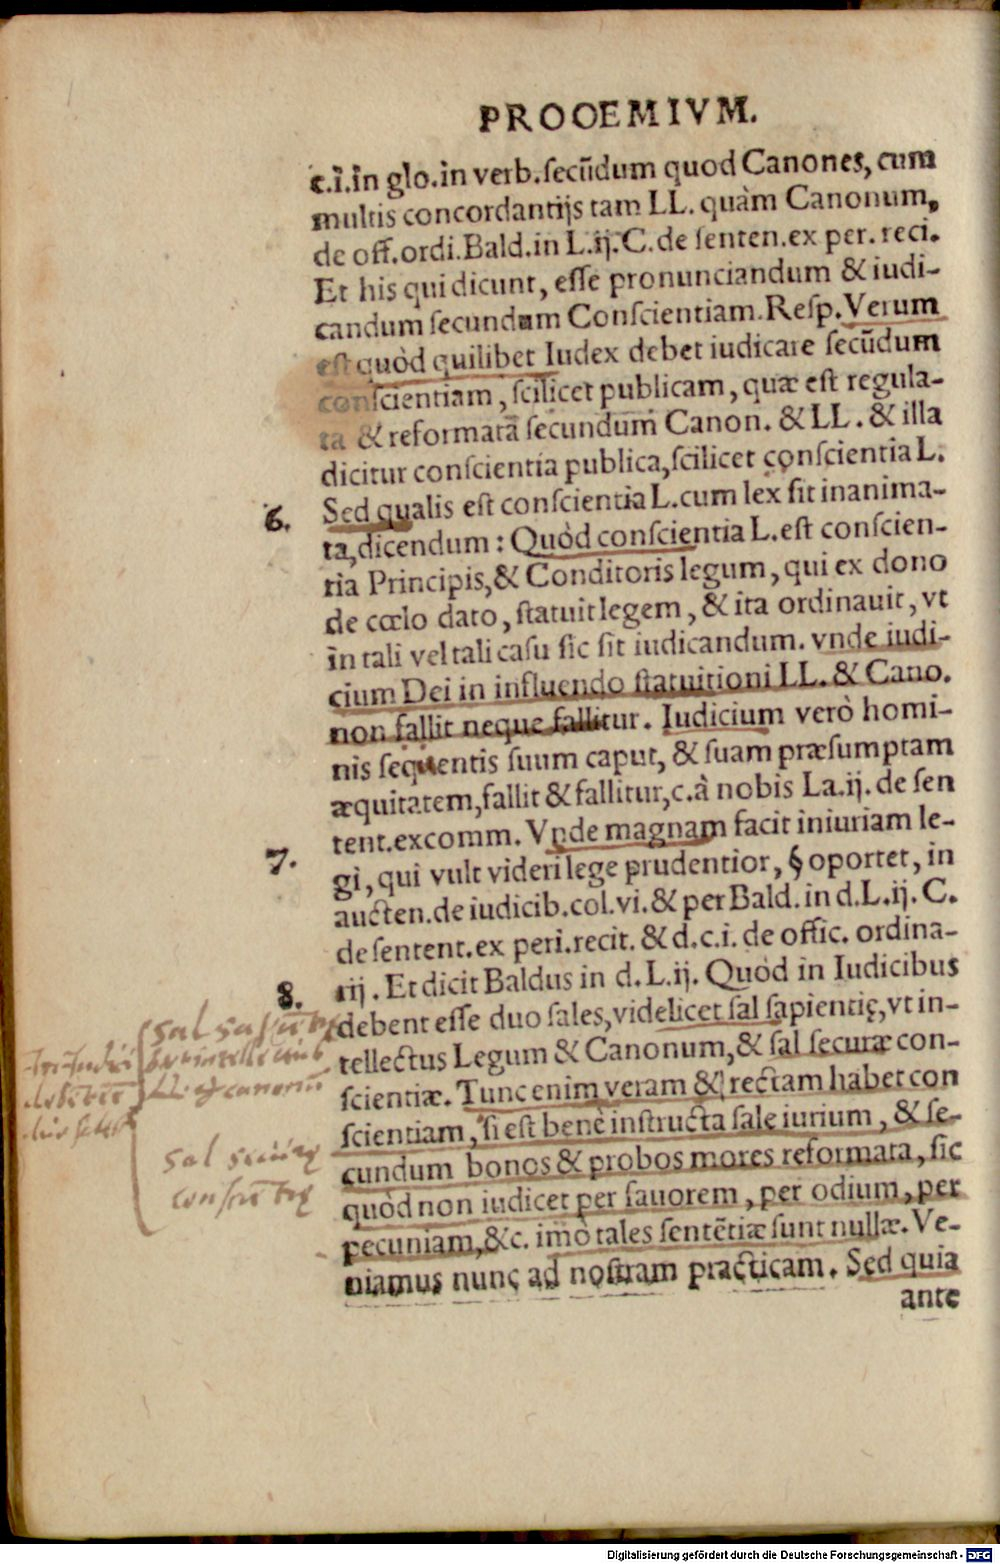 PROOEMIVM.
c.i.in glo.in verb.ſecũdum quod Canones, cum
multis concordantijs tam LL. quàm Canonum,
de off.ordi.Bald.in L.ij.C.de ſenten.ex per.reci.
Et his qui dicunt, eſſe pronunciandum & iudi-
candum ſecundum Conſcientiam.Reſp.Verum
eſt quòd quilibet Iudex debet iudicare ſecũdum
conſcientiam, ſcilicet publicam, quæ eſt regula-
ta & reformatã ſecundum Canon. & LL. & illa
dicitur conſcientia publica,ſcilicet conſcientia L.
6. Sed qualis eſt conſcientia L.cum lex ſit inanima-
ta,dicendum: Quòd conſcientia L.eſt conſcien-
tia Principis,& Conditoris legum, qui ex dono
de cœlo dato, ſtatuit legem, & ita ordinauit, vt
in tali vel tali caſu ſic ſit iudicandum. vnde iudi-
cium Dei in influendo ſtatuitioni LL. & Cano.
non fallit neque fallitur. Iudicium verò homi-
nis ſequentis ſuum caput, & ſuam præſumptam
æquitatem,fallit & fallitur,c.à nobis La.ij. de ſen
tent.excomm. Vnde magnam facit iniuriam le-
7. gi, qui vult videri lege prudentior, § oportet, in
aucten.de iudicib.col.vi.& per Bald.in d.L.ij. C.
de ſentent.ex peri.recit. & d.c.i. de offic. ordina-
8. rij. Et dicit Baldus in d.L.ij. Quòd in Iudicibus
debent eſſe duo ſales,videlicet ſal ſapientię,vt in-
tellectus Legum & Canonum,& ſal ſecuræ con-
ſcientiæ. Tunc enim veram & rectam habet con
ſcientiam, ſi eſt benè inſtructa ſale iurium, & ſe-
cundum bonos & probos mores reformata, ſic
quòd non iudicet per fauorem, per odium, per
pecuniam,&c. imò tales ſentẽtiæ ſunt nullæ. Ve-
niamus nunc ad noſtram practicam. Sed quia
ante
sal
canonũ
sal
Digitalisierung gefördert durch die Deutsche Forschungsgemeinschaft - DFG